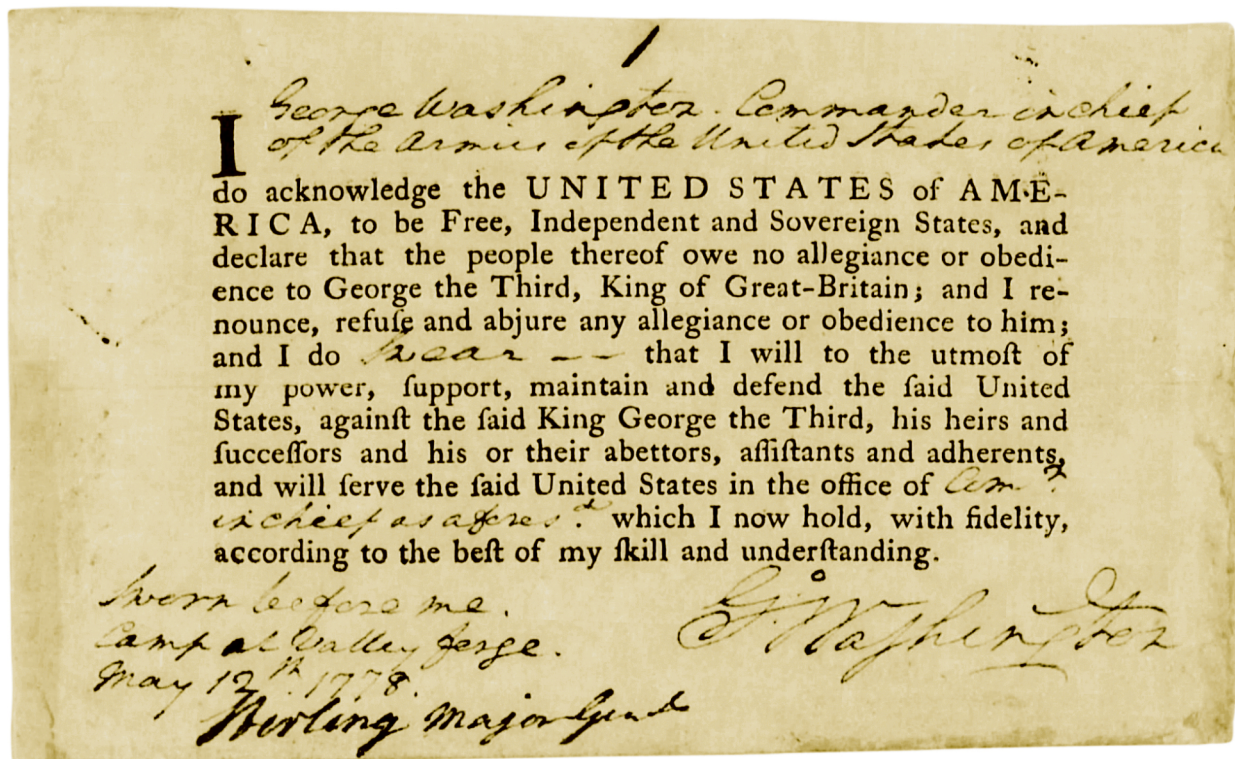 1
George Washington Commander in chief
I of the Armies of the United States of America
do acknowledge the UNITED STATES of AME-
RICA, to be Free, Independent and Sovereign States, and
declare that the people thereof owe no allegiance or obedi-
ence to George the Third, King of Great-Britain; and I re-
nounce, refuſe and abjure any allegiance or obedience to him;
and I do swear — — that I will to the utmoſt of
my power, ſupport, maintain and defend the ſaid United
States, againſt the ſaid King George the Third, his heirs and
ſucceſſors and his or their abettors, aſſiſtants and adherents,
and will ſerve the ſaid United States in the office of Com.r
in chief as afores.d which I now hold, with fidelity,
according to the beſt of my ſkill and underſtanding.
Sworn before me.
Camp at Valley forge.
May 12th. 1778.
Stirling Major Genl
Go Washington